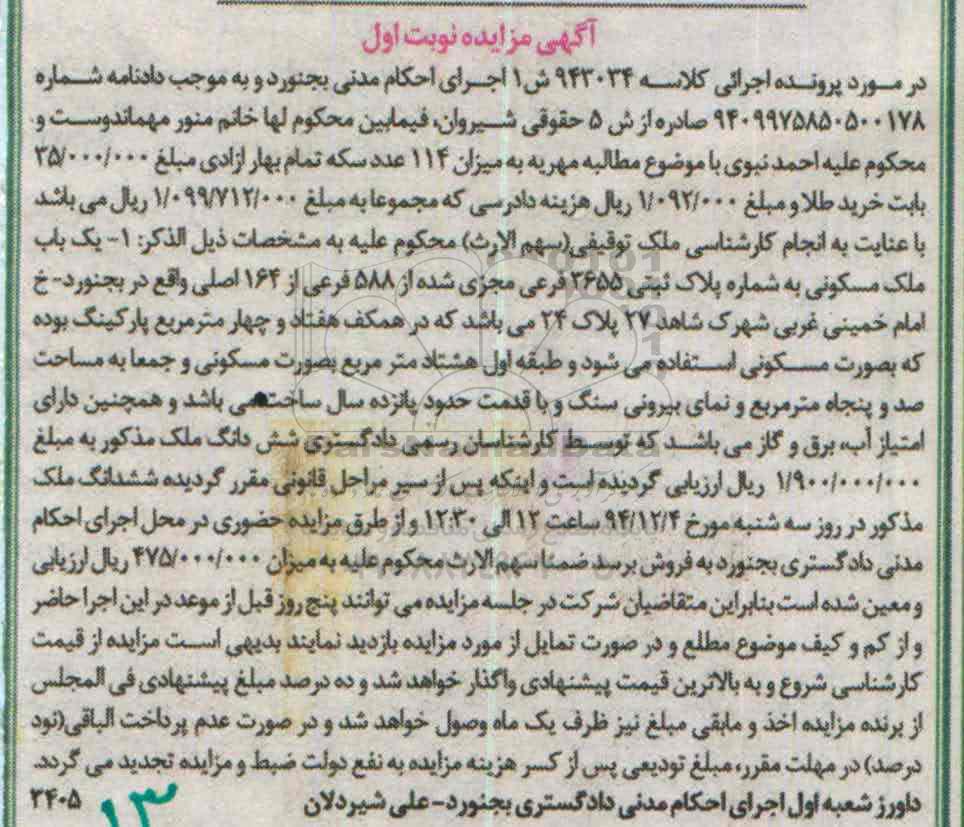 آگهی مزایده نوبت اول
در مورد پرونده اجرائی کلاسه ۹۴۳۰۳۴ ش۱ اجرای احکام مدنی بجنورد و به موجب دادنامه شماره
۹۴۰۹۹۷۵۸۵۰۵۰۰۱۷۸ صادره از ش ۵ حقوقی شیروان، فیمابین محکوم لها خانم منور مهماندوست و
محکوم علیه احمد نبوی با موضوع مطالبه مهریه به میزان ۱۱۴ عدد سکه تمام بهار ازادی مبلغ ۳۵/۰۰۰/۰۰۰
بابت خرید طلا و مبلغ ۱/۰۹۲/۰۰۰ ریال هزینه دادرسی که مجموعا به مبلغ ۱/۰۹۹/۷۱۲/۰۰۰ ریال می باشد
با عنایت به انجام کارشناسی ملک توقیفی(سهم الارث) محکوم علیه به مشخصات ذیل الذکر: ۱- یک باب
ملک مسکونی به شماره پلاک ثبتی ۳۶۵۵ فرعی مجزی شده از ۵۸۸ فرعی از ۱۶۴ اصلی واقع در بجنورد- خ
امام خمینی غربی شهرک شاهد ۲۷ پلاک ۲۴ می باشد که در همکف هفتاد و چهار مترمربع پارکینگ بوده
که بصورت مسکونی استفاده می شود و طبقه اول هشتاد متر مربع بصورت مسکونی و جمعا به مساحت
صد و پنجاه مترمربع و نمای بیرونی سنگ و با قدمت حدود پانزده سال ساخت می باشد و همچنین دارای
امتیاز آب، برق و گاز می باشد که توسط کارشناسان رسمی دادگستری شش دانگ ملک مذکور به مبلغ
۱/۹۰۰/۰۰۰/۰۰۰ ریال ارزیابی گردیده است و اینکه پس از سیر مراحل قانونی مقرر گردیده ششدانگ ملک
مذکور در روز سه شنبه مورخ ۹۴/۱۲/۴ ساعت ۱۲ الی ۱۲:۳۰ و از طرق مزایده حضوری در محل اجرای احکام
مدنی دادگستری بجنورد به فروش برسد ضمنا سهم الارث محکوم علیه به میزان ۴۷۵/۰۰۰/۰۰۰ ریال ارزیابی
و معین شده است بنابراین متقاضیان شرکت در جلسه مزایده می توانند پنج روز قبل از موعد در این اجرا حاضر
و از کم و کیف موضوع مطلع و در صورت تمایل از مورد مزایده بازدید نمایند بدیهی است مزایده از قیمت
کارشناسی شروع و به بالاترین قیمت پیشنهادی واگذار خواهد شد و ده درصد مبلغ پیشنهادی فی المجلس
از برنده مزایده اخذ و مابقی مبلغ نیز ظرف یک ماه وصول خواهد شد و در صورت عدم پرداخت الباقی(نود
درصد) در مهلت مقرر، مبلغ تودیعی پس از کسر هزینه مزایده به نفع دولت ضبط و مزایده تجدید می گردد.
داورز شعبه اول اجرای احکام مدنی دادگستری بجنورد- علی شیردلان
۳۴۰۵
۱۳